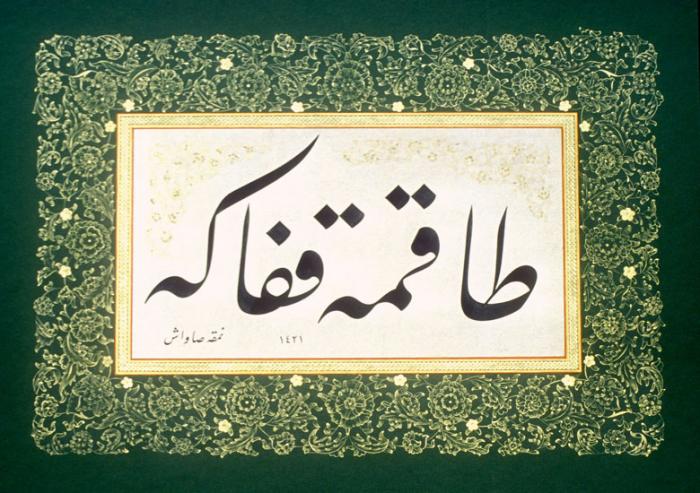 طاقمه قفاكه
١٤٢١ نمقه صاواش